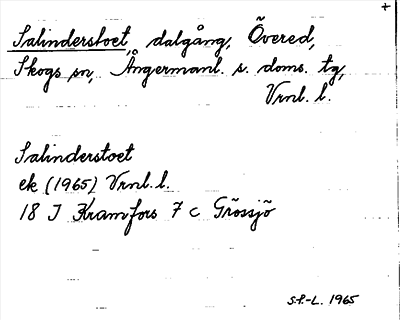 +
Salinderstoet, dalgång, Övered,
Skogs sn, Ångermanl. s. doms. tg,
Vrnl. l.
Salinderstoet
ek (1965) Vrnl. l.
18 J Kramfors 7 c Grössjö
S.P.-L. 1965